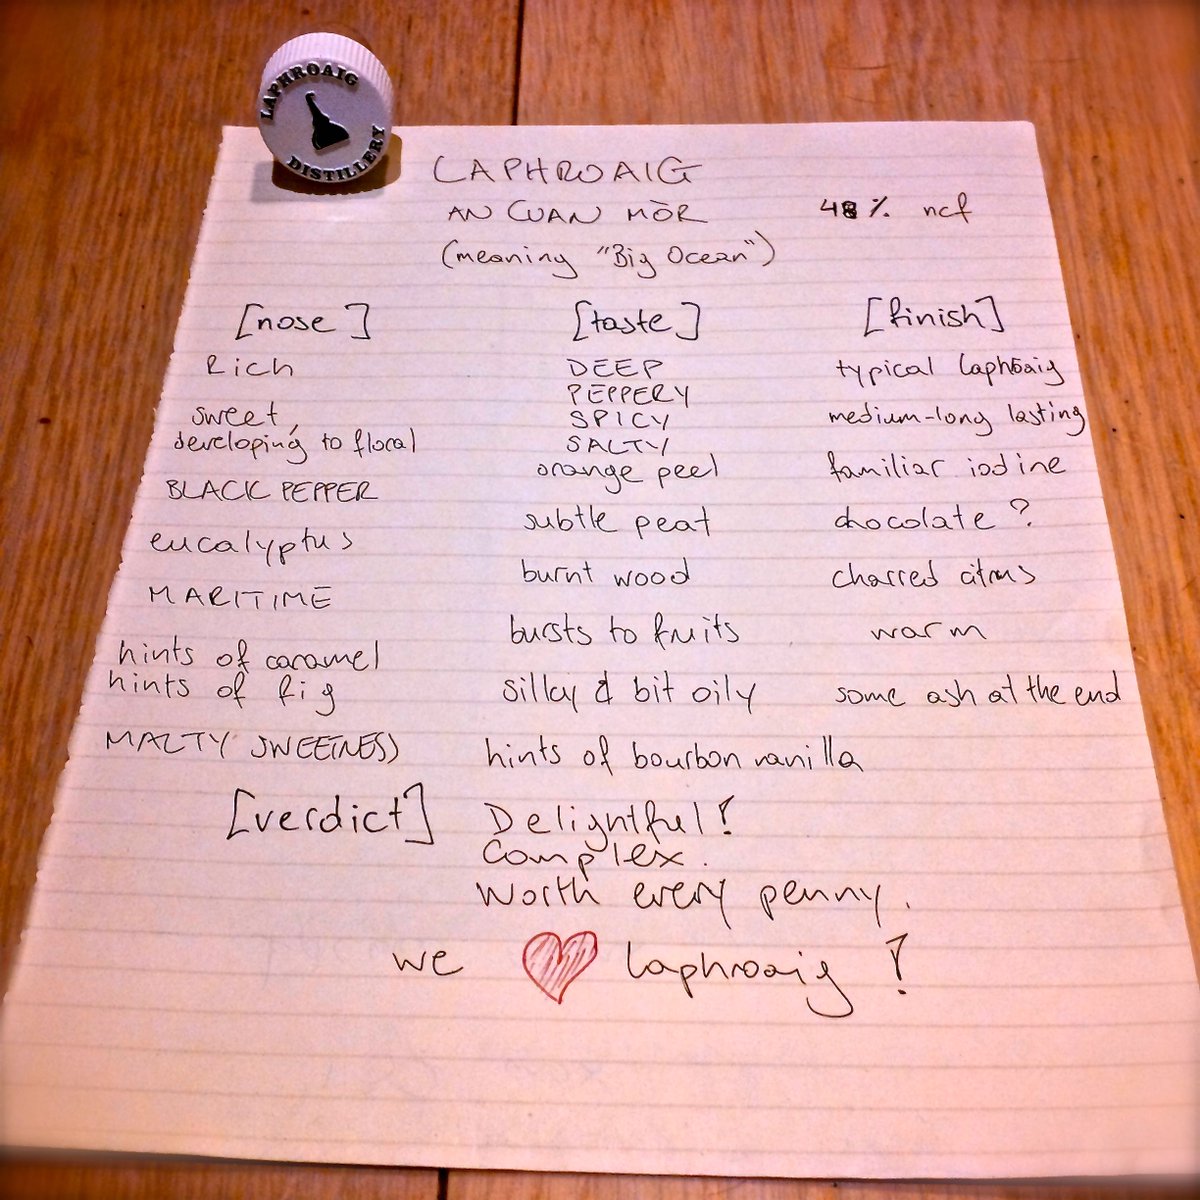 LAPHROAIG
DISTILLERY
LAPHROAIG
AN CUAN MÒR 48% ncf
(meaning "Big Ocean")
[nose]
Rich
sweet,
developing to floral
BLACK PEPPER
eucalyptus
MARITIME
hints of caramel
hints of fig
MALTY SWEETNESS
[taste]
DEEP
PEPPERY
SPICY
SALTY
orange peel
subtle peat
burnt wood
bursts to fruits
silky & bit oily
hints of bourbon vanilla
[finish]
typical Laphroaig
medium-long lasting
familiar iodine
chocolate?
charred citrus
warm
some ash at the end
[verdict] Delightful!
Complex.
Worth every penny.
we ❤ Laphroaig!